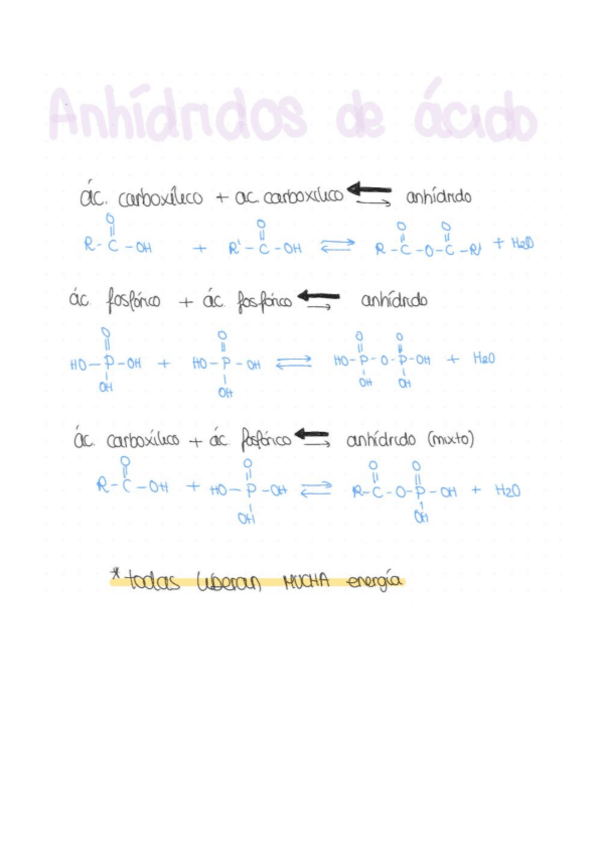 Anhídridos de ácido
ác. carboxílico + ac carboxílico ⇄ anhídrido
O O O O
|| || || ||
R-C-OH + R'-C-OH ⇄ R-C-O-C-R' + H2O
ác fosfórico + ác fosfórico ⇄ anhídrido
O O O O
|| || || ||
HO-P-OH + HO-P-OH ⇄ HO-P-O-P-OH + H2O
| | | |
OH OH OH OH
ác carboxílico + ác fosfórico ⇄ anhídrido (mixto)
O O O O
|| || || ||
R-C-OH + HO-P-OH ⇄ R-C-O-P-OH + H2O
| |
OH OH
* todas liberan MUCHA energía